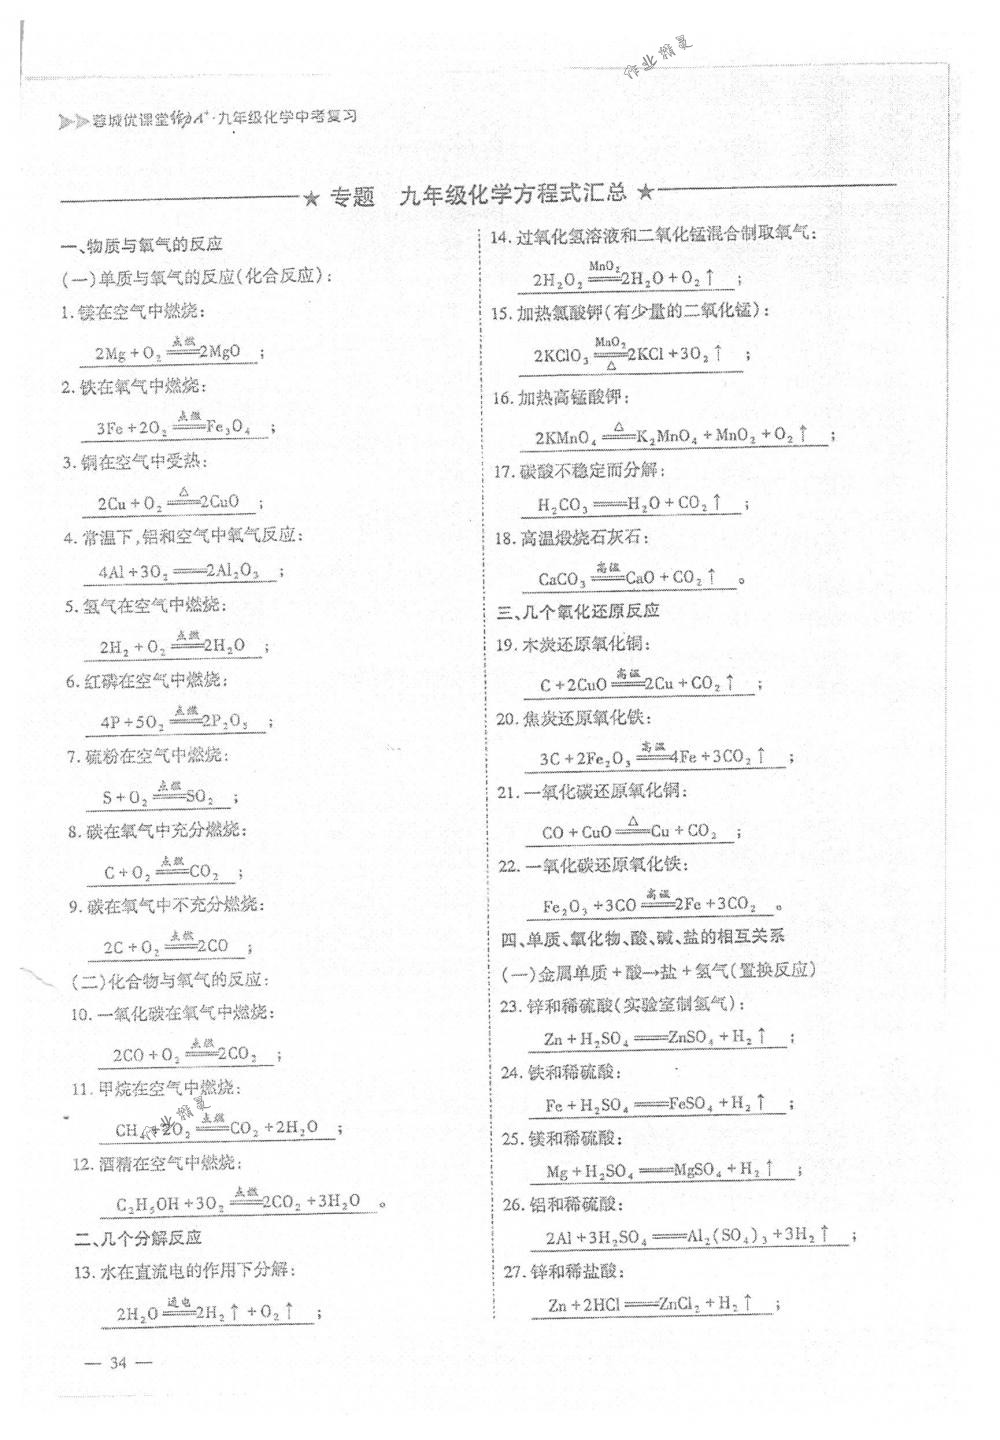 作业精灵
蓉城优课堂给力A⁺·九年级化学中考复习
★ 专题 九年级化学方程式汇总 ★
一、物质与氧气的反应
(一)单质与氧气的反应(化合反应):
1. 镁在空气中燃烧:
2Mg+O₂ 点燃══ 2MgO ;
2. 铁在氧气中燃烧:
3Fe+2O₂ 点燃══ Fe₃O₄ ;
3. 铜在空气中受热:
2Cu+O₂ △══ 2CuO ;
4. 常温下,铝和空气中氧气反应:
4Al+3O₂ ══ 2Al₂O₃ ;
5. 氢气在空气中燃烧:
2H₂+O₂ 点燃══ 2H₂O ;
6. 红磷在空气中燃烧:
4P+5O₂ 点燃══ 2P₂O₅ ;
7. 硫粉在空气中燃烧:
S+O₂ 点燃══ SO₂ ;
8. 碳在氧气中充分燃烧:
C+O₂ 点燃══ CO₂ ;
9. 碳在氧气中不充分燃烧:
2C+O₂ 点燃══ 2CO ;
(二)化合物与氧气的反应:
10. 一氧化碳在氧气中燃烧:
2CO+O₂ 点燃══ 2CO₂ ;
11. 甲烷在空气中燃烧:
作业精灵
CH₄+2O₂ 点燃══ CO₂+2H₂O ;
12. 酒精在空气中燃烧:
C₂H₅OH+3O₂ 点燃══ 2CO₂+3H₂O 。
二、几个分解反应
13. 水在直流电的作用下分解:
2H₂O 通电══ 2H₂↑+O₂↑ ;
— 34 —
14. 过氧化氢溶液和二氧化锰混合制取氧气:
2H₂O₂ MnO₂══ 2H₂O+O₂↑ ;
15. 加热氯酸钾(有少量的二氧化锰):
2KClO₃ MnO₂══△ 2KCl+3O₂↑ ;
16. 加热高锰酸钾:
2KMnO₄ △══ K₂MnO₄+MnO₂+O₂↑ ;
17. 碳酸不稳定而分解:
H₂CO₃ ══ H₂O+CO₂↑ ;
18. 高温煅烧石灰石:
CaCO₃ 高温══ CaO+CO₂↑ 。
三、几个氧化还原反应
19. 木炭还原氧化铜:
C+2CuO 高温══ 2Cu+CO₂↑ ;
20. 焦炭还原氧化铁:
3C+2Fe₂O₃ 高温══ 4Fe+3CO₂↑ ;
21. 一氧化碳还原氧化铜:
CO+CuO △══ Cu+CO₂ ;
22. 一氧化碳还原氧化铁:
Fe₂O₃+3CO 高温══ 2Fe+3CO₂ 。
四、单质、氧化物、酸、碱、盐的相互关系
(一)金属单质+酸→盐+氢气(置换反应)
23. 锌和稀硫酸(实验室制氢气):
Zn+H₂SO₄ ══ ZnSO₄+H₂↑ ;
24. 铁和稀硫酸:
Fe+H₂SO₄ ══ FeSO₄+H₂↑ ;
25. 镁和稀硫酸:
Mg+H₂SO₄ ══ MgSO₄+H₂↑ ;
26. 铝和稀硫酸:
2Al+3H₂SO₄ ══ Al₂(SO₄)₃+3H₂↑ ;
27. 锌和稀盐酸:
Zn+2HCl ══ ZnCl₂+H₂↑ ;